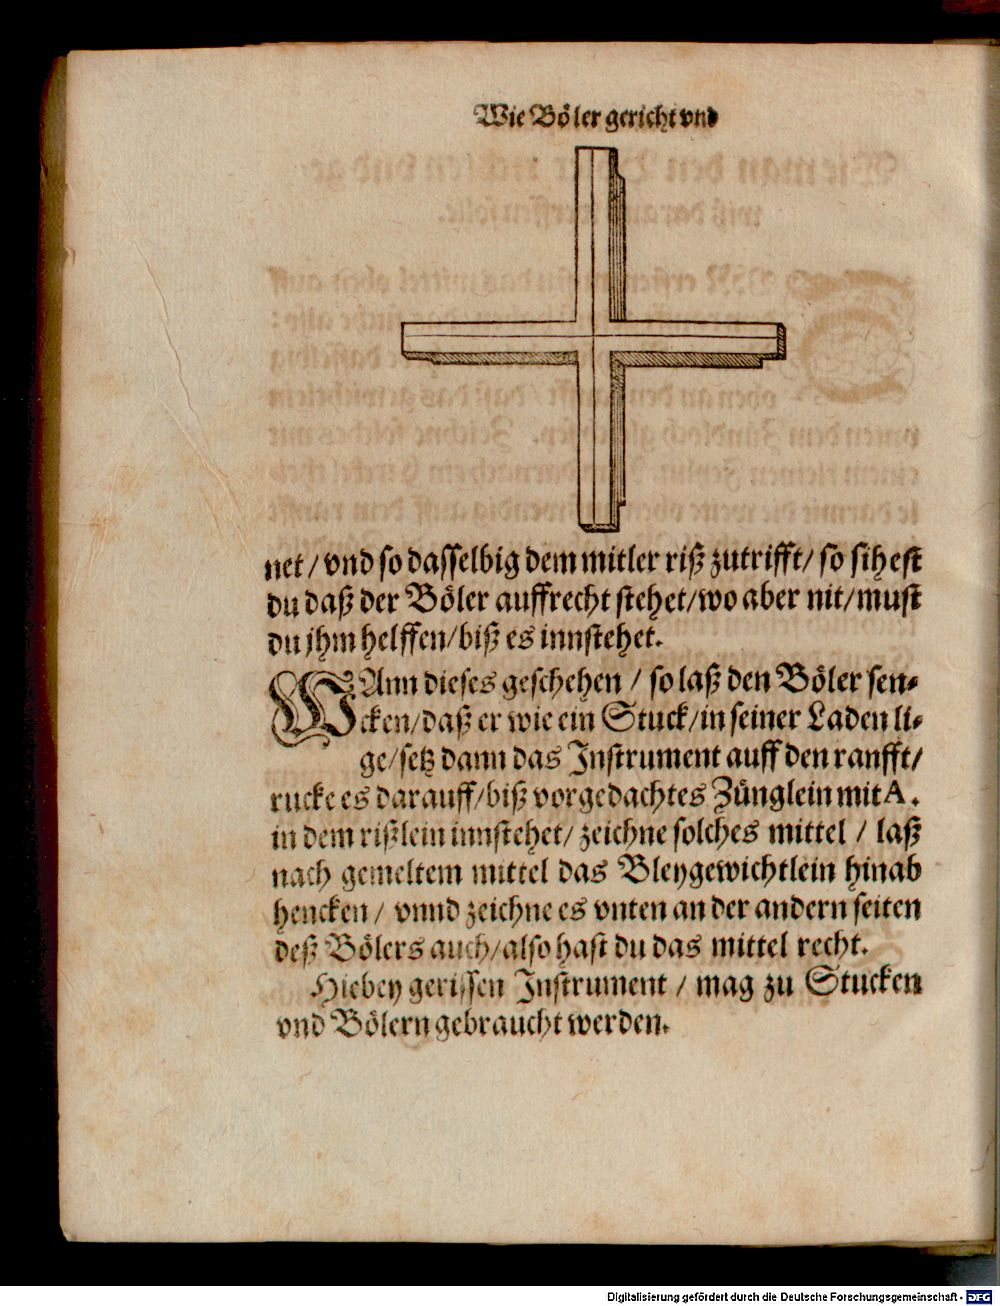 Wie Böler gericht vnd
net / vnd so dasselbig dem mitler riß zutrifft / so sihest
du daß der Böler auffrecht stehet / wo aber nit / must
du jhm helffen / biß es innstehet.
WAnn dieses geschehen / so laß den Böler sen-
cken / daß er wie ein Stuck / in seiner Laden li-
ge / setz dann das Instrument auff den ranfft /
rucke es darauff / biß vorgedachtes Zünglein mit A.
in dem rißlein innstehet / zeichne solches mittel / laß
nach gemeltem mittel das Bleygewichtlein hinab
hencken / vnnd zeichne es vnten an der andern seiten
deß Bölers auch / also hast du das mittel recht.
Hiebey gerissen Instrument / mag zu Stucken
vnd Bölern gebraucht werden.
Digitalisierung gefördert durch die Deutsche Forschungsgemeinschaft - DFG